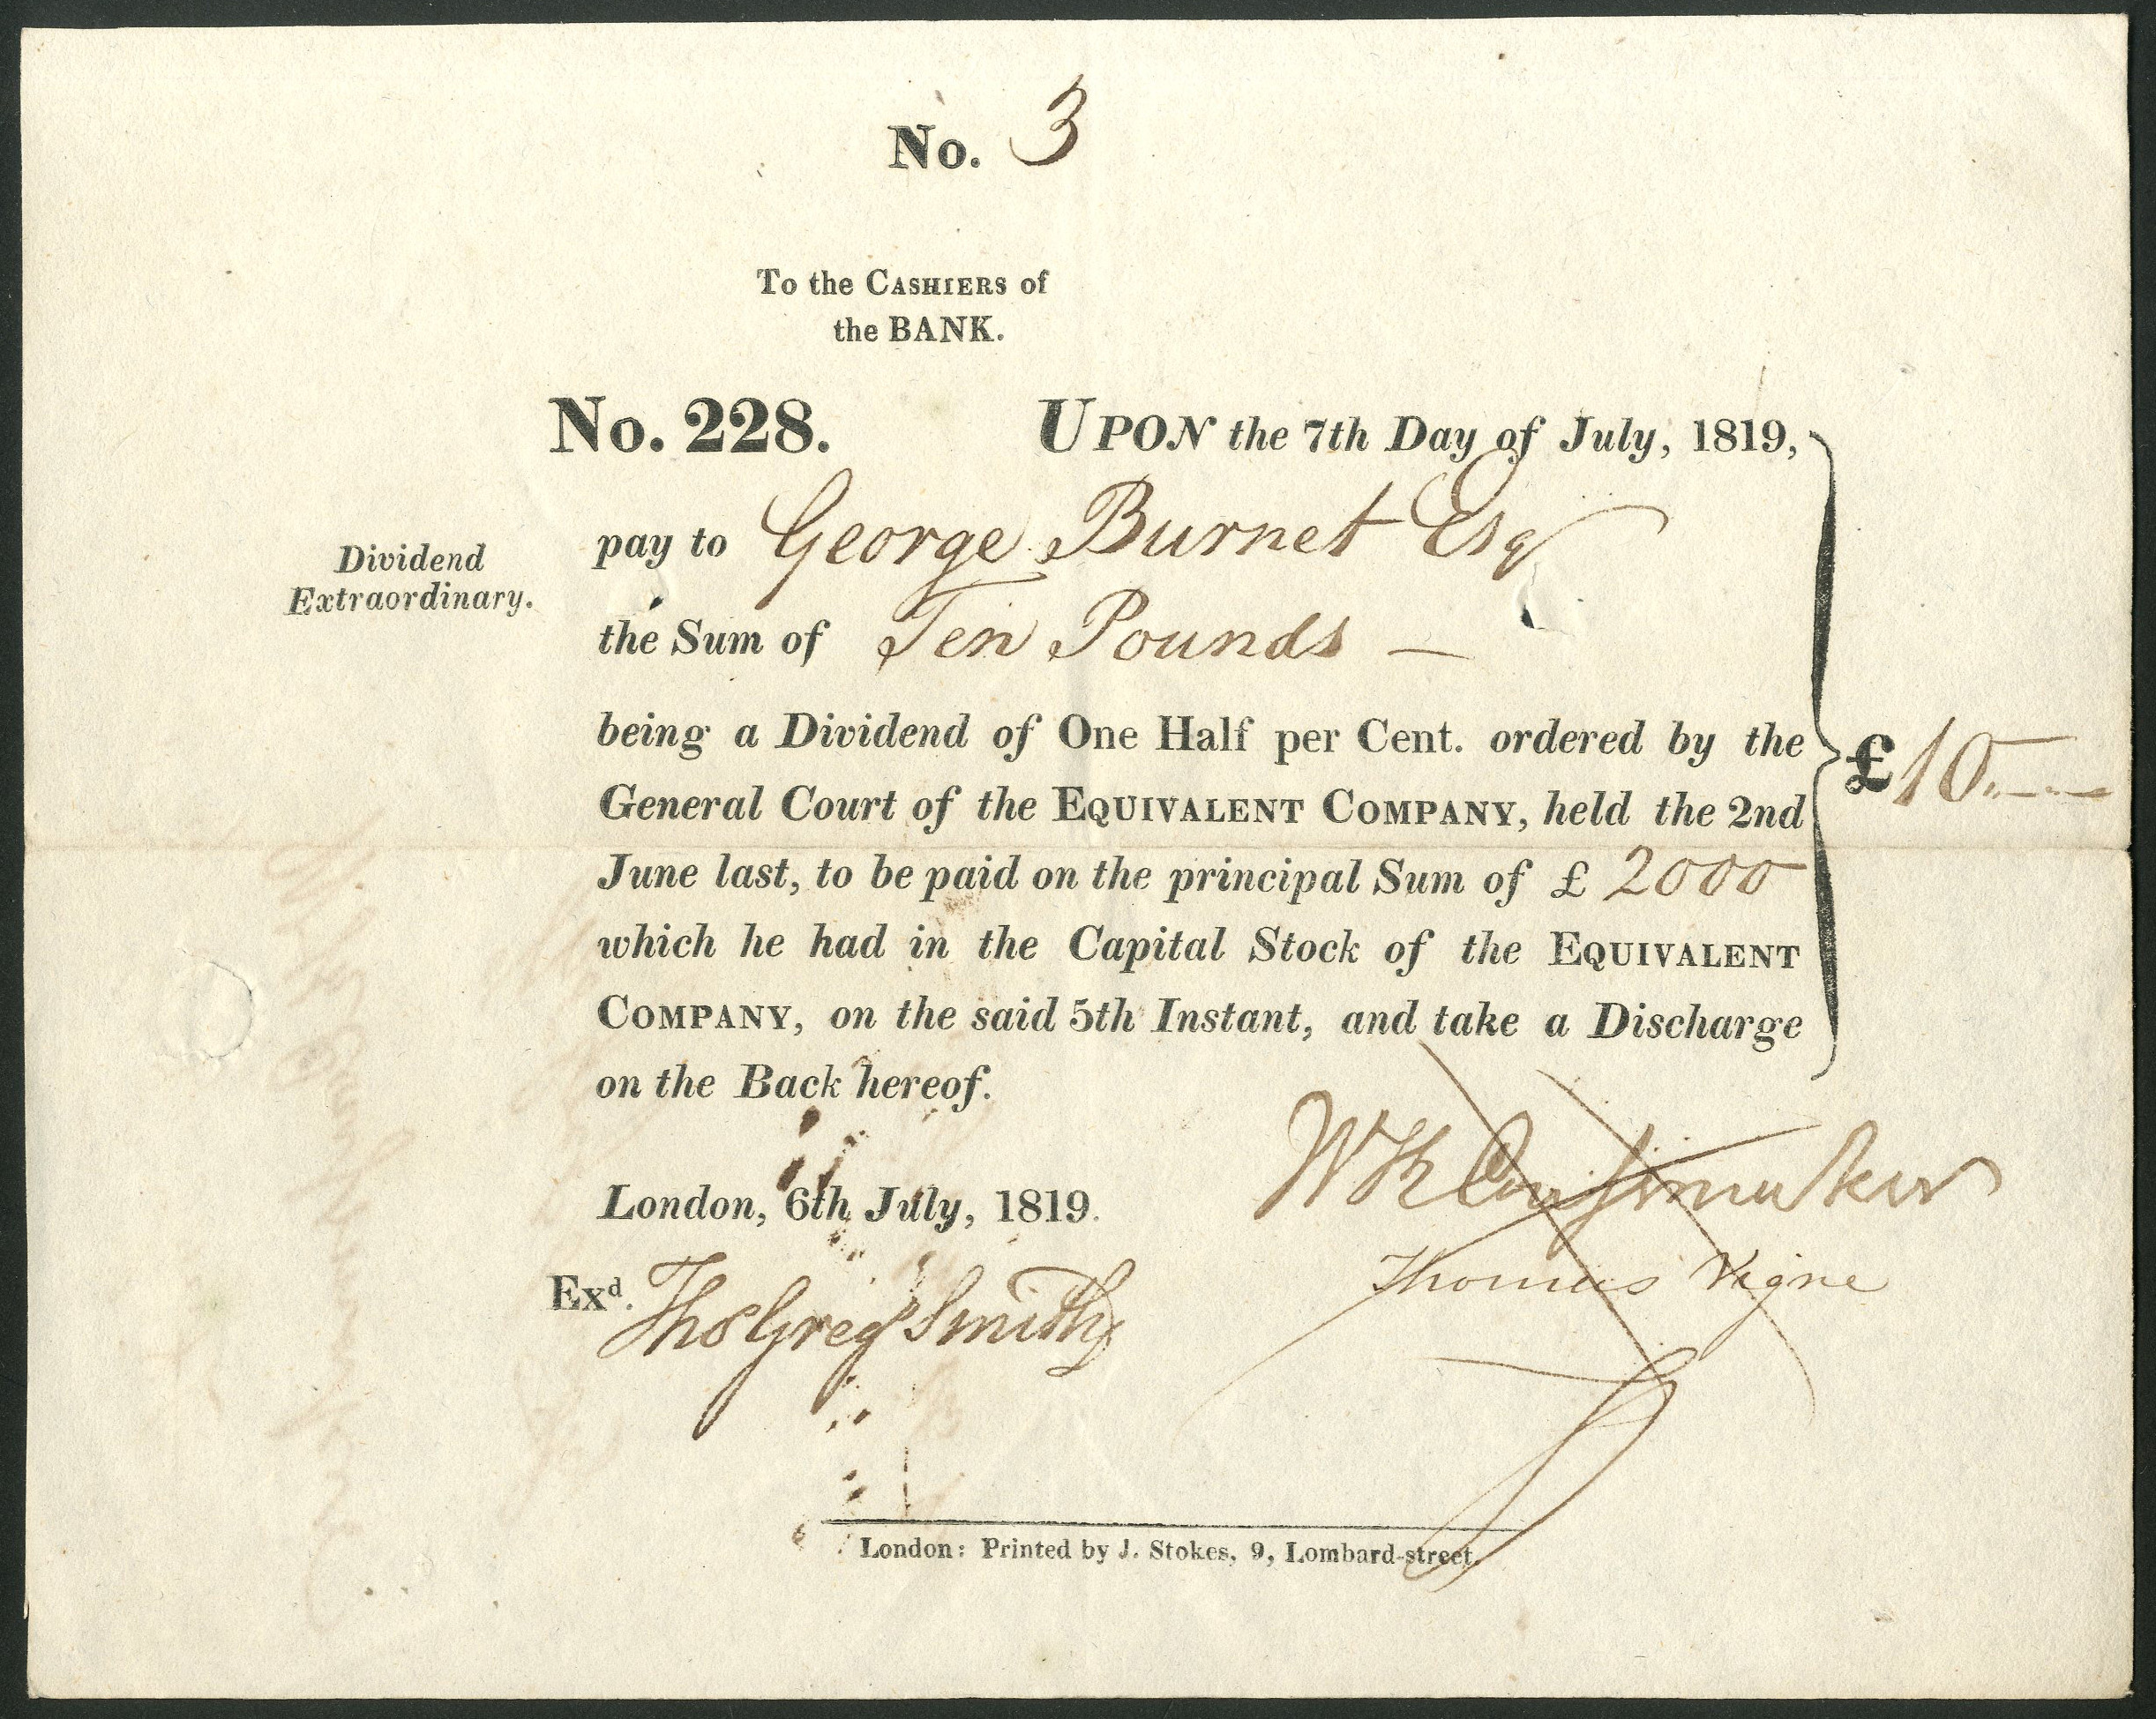 No. 3
To the CASHIERS of
the BANK.
No. 228. UPON the 7th Day of July, 1819,
pay to George Burnet Esq
Dividend
Extraordinary.
the Sum of Ten Pounds —
being a Dividend of One Half per Cent. ordered by the
£10
General Court of the EQUIVALENT COMPANY, held the 2nd
June last, to be paid on the principal Sum of £ 2000
which he had in the Capital Stock of the EQUIVALENT
COMPANY, on the said 5th Instant, and take a Discharge
on the Back hereof.
London, 6th July, 1819.
Thomas Vigne
Exd. Thos Gregy Smith
London: Printed by J. Stokes, 9, Lombard-street.